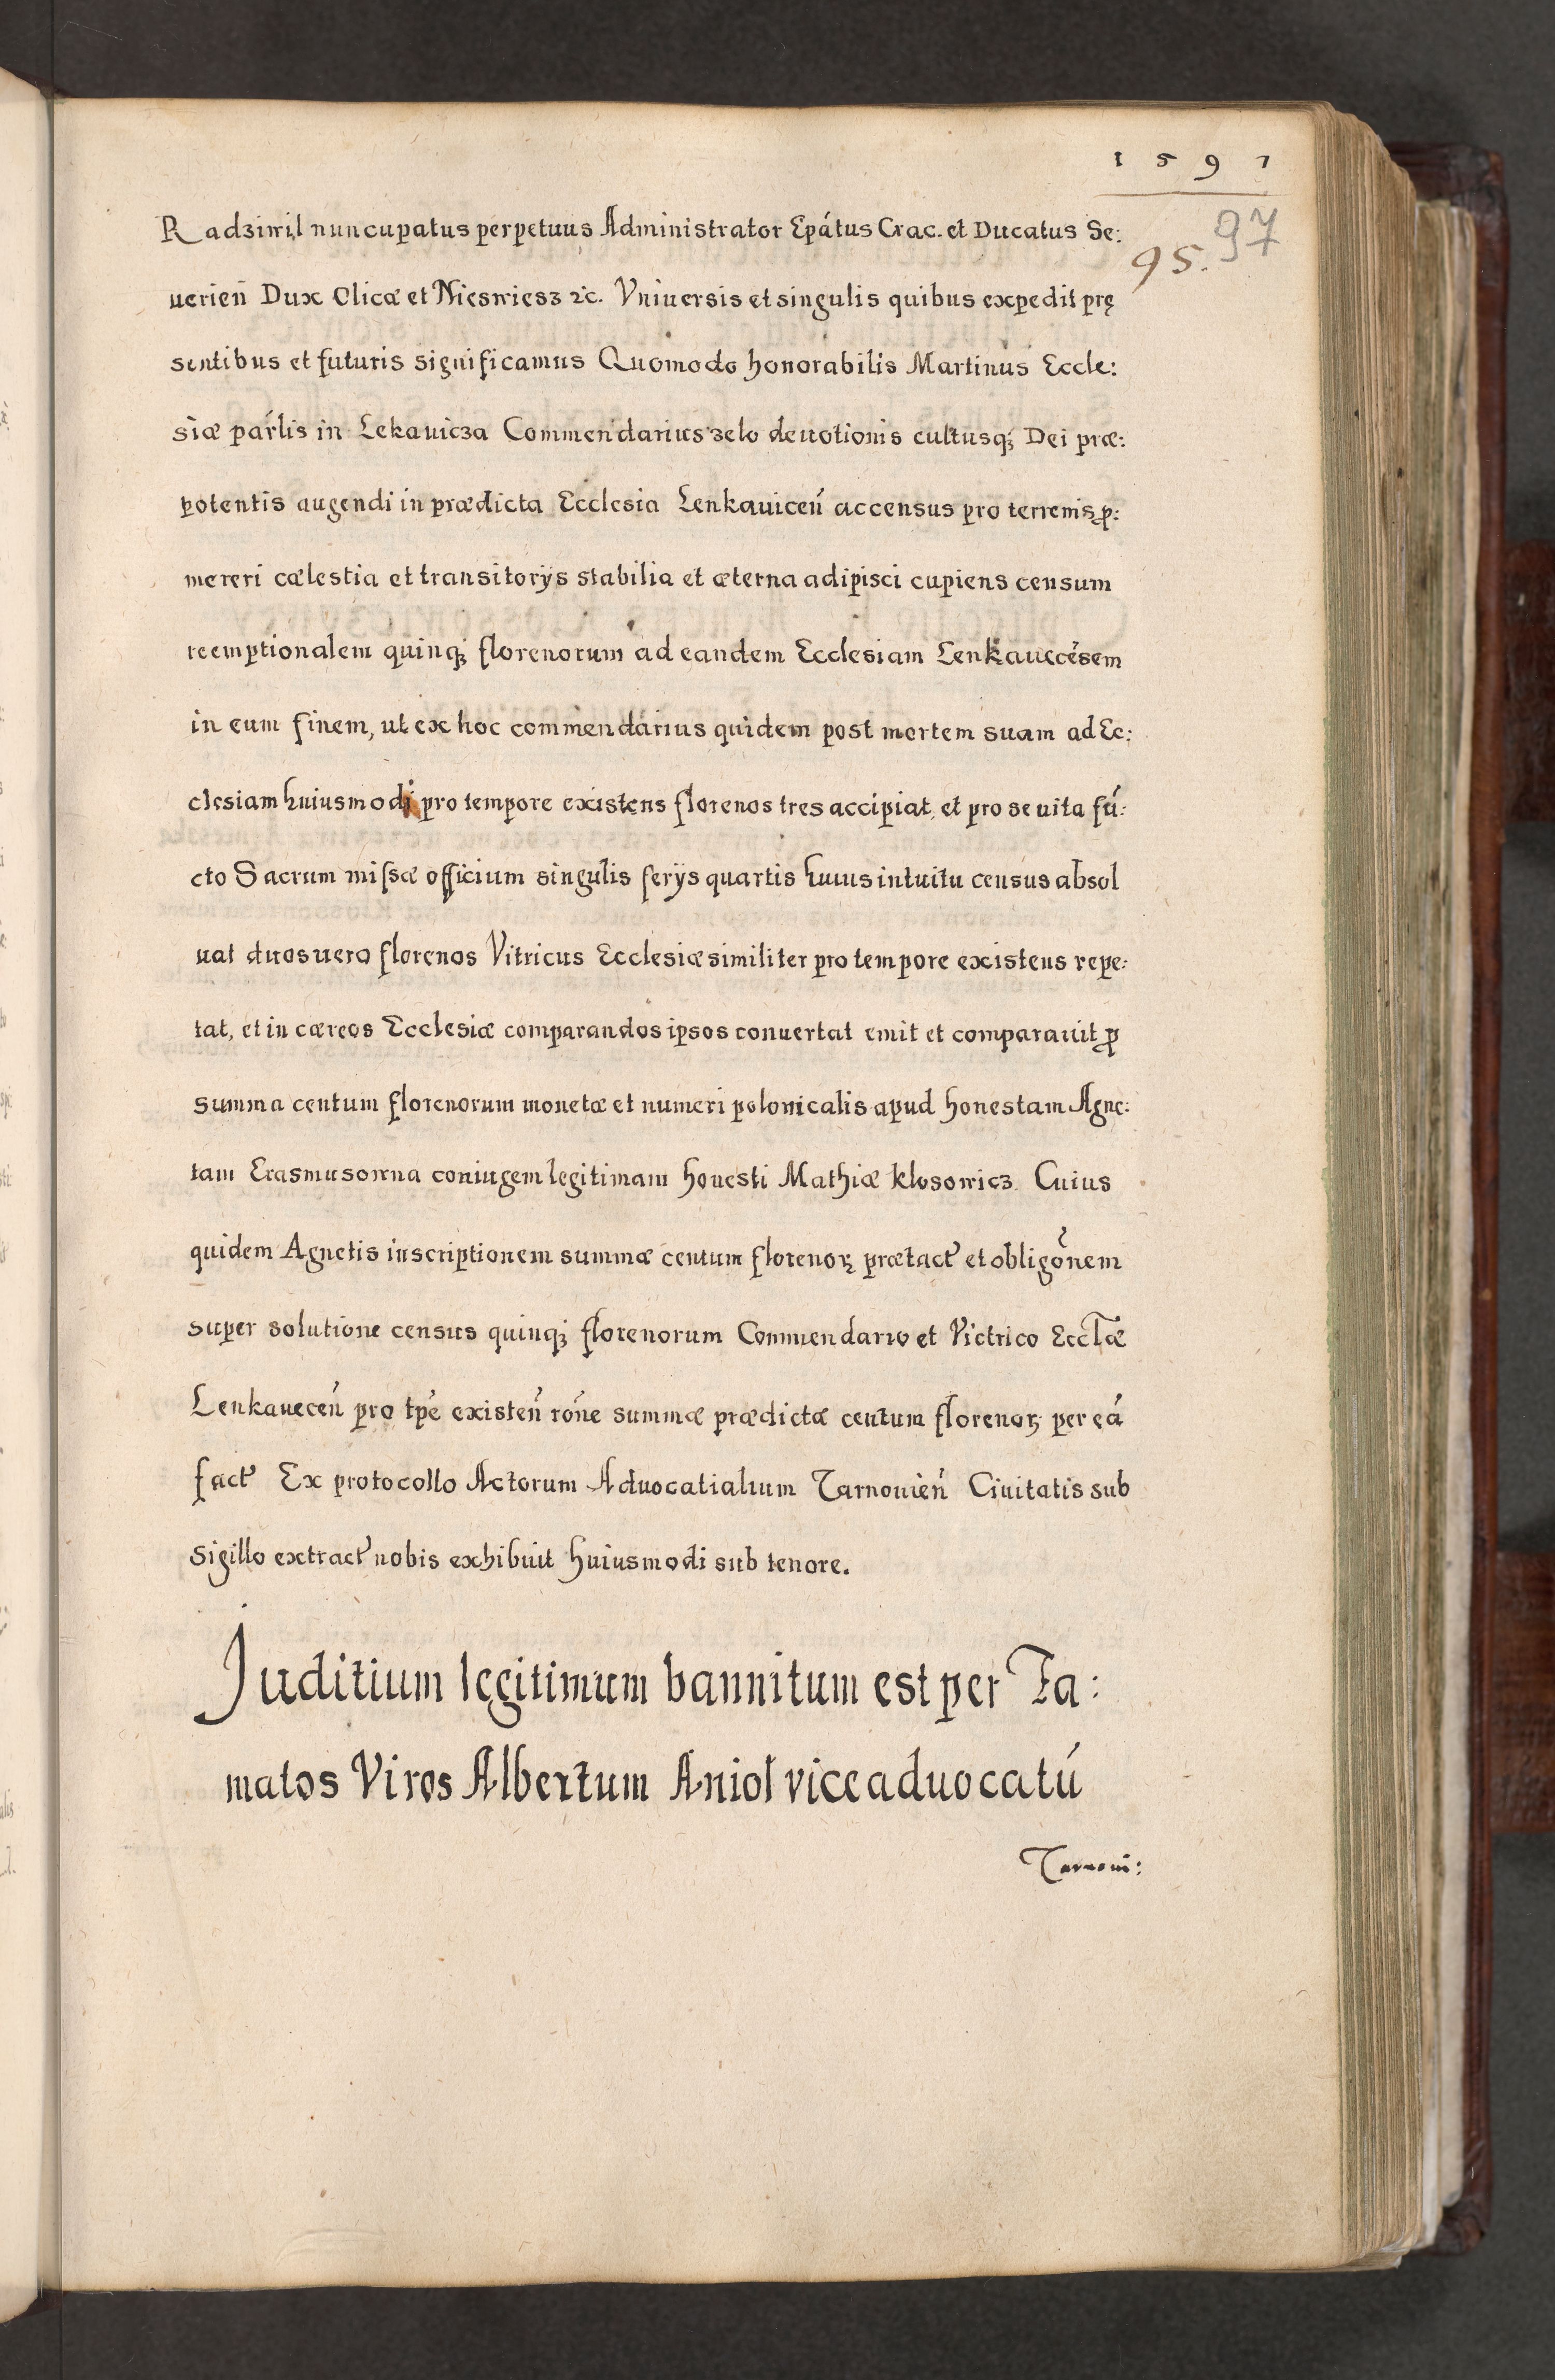 1591
97
95.
Radziwil nuncupatus perpetuus Administrator Epátus Crac. et Ducatus Se:
uerien̄ Dux Olicæ et Nieswiesz ꝛc. Vniuersis et singulis quibus expedit prę
sentibus et futuris significamus Quomodo honorabilis Martinus Eccle:
siæ parlis in Lekauicza Commendarius zelo deuotionis cultusq; Dei præ:
potentis augendi in prædicta Ecclesia Lenkauicen̄ accensus pro terrenis ꝓ:
mereri cælestia et transitorijs stabilia et æterna adipisci cupiens censum
reemptionalem quinq; florenorum ad eandem Ecclesiam Lenkauecēsem
in eum finem, ut ex hoc commendarius quidem post mortem suam ad Ec:
clesiam huiusmodi pro tempore existens florenos tres accipiat, et pro se uita fū:
cto Sacrum missæ officium singulis ferijs quartis huius intuitu census absol
uat duos uero florenos Vitricus Ecclesiæ similiter pro tempore existens repe:
tat, et in cæreos Ecclesiæ comparandos ipsos conuertat emit et comparauit ꝓ
summa centum florenorum monetæ et numeri polonicalis apud honestam Agne:
tam Erasmusowna coniugem legitimam honesti Mathiæ Klosowicz. Cuius
quidem Agnetis inscriptionem summæ centum florenoꝝ prætact̄ et obligōnem
super solutione census quinq; florenorum Commendario et Victrico Eccl̄æ
Lenkauecen̄ pro tp̄e existen̄ rōne summæ prædictæ centum florenoꝝ per eā
fact̄ Ex protocollo Actorum Aduocatialium Tarnouien̄ Ciuitatis sub
Sigillo extract̄ nobis exhibuit huiusmodi sub tenore.
Juditium legitimum bannitum est per Fa:
matos Viros Albertum Aniol viceaduocatū
Tarnoui: